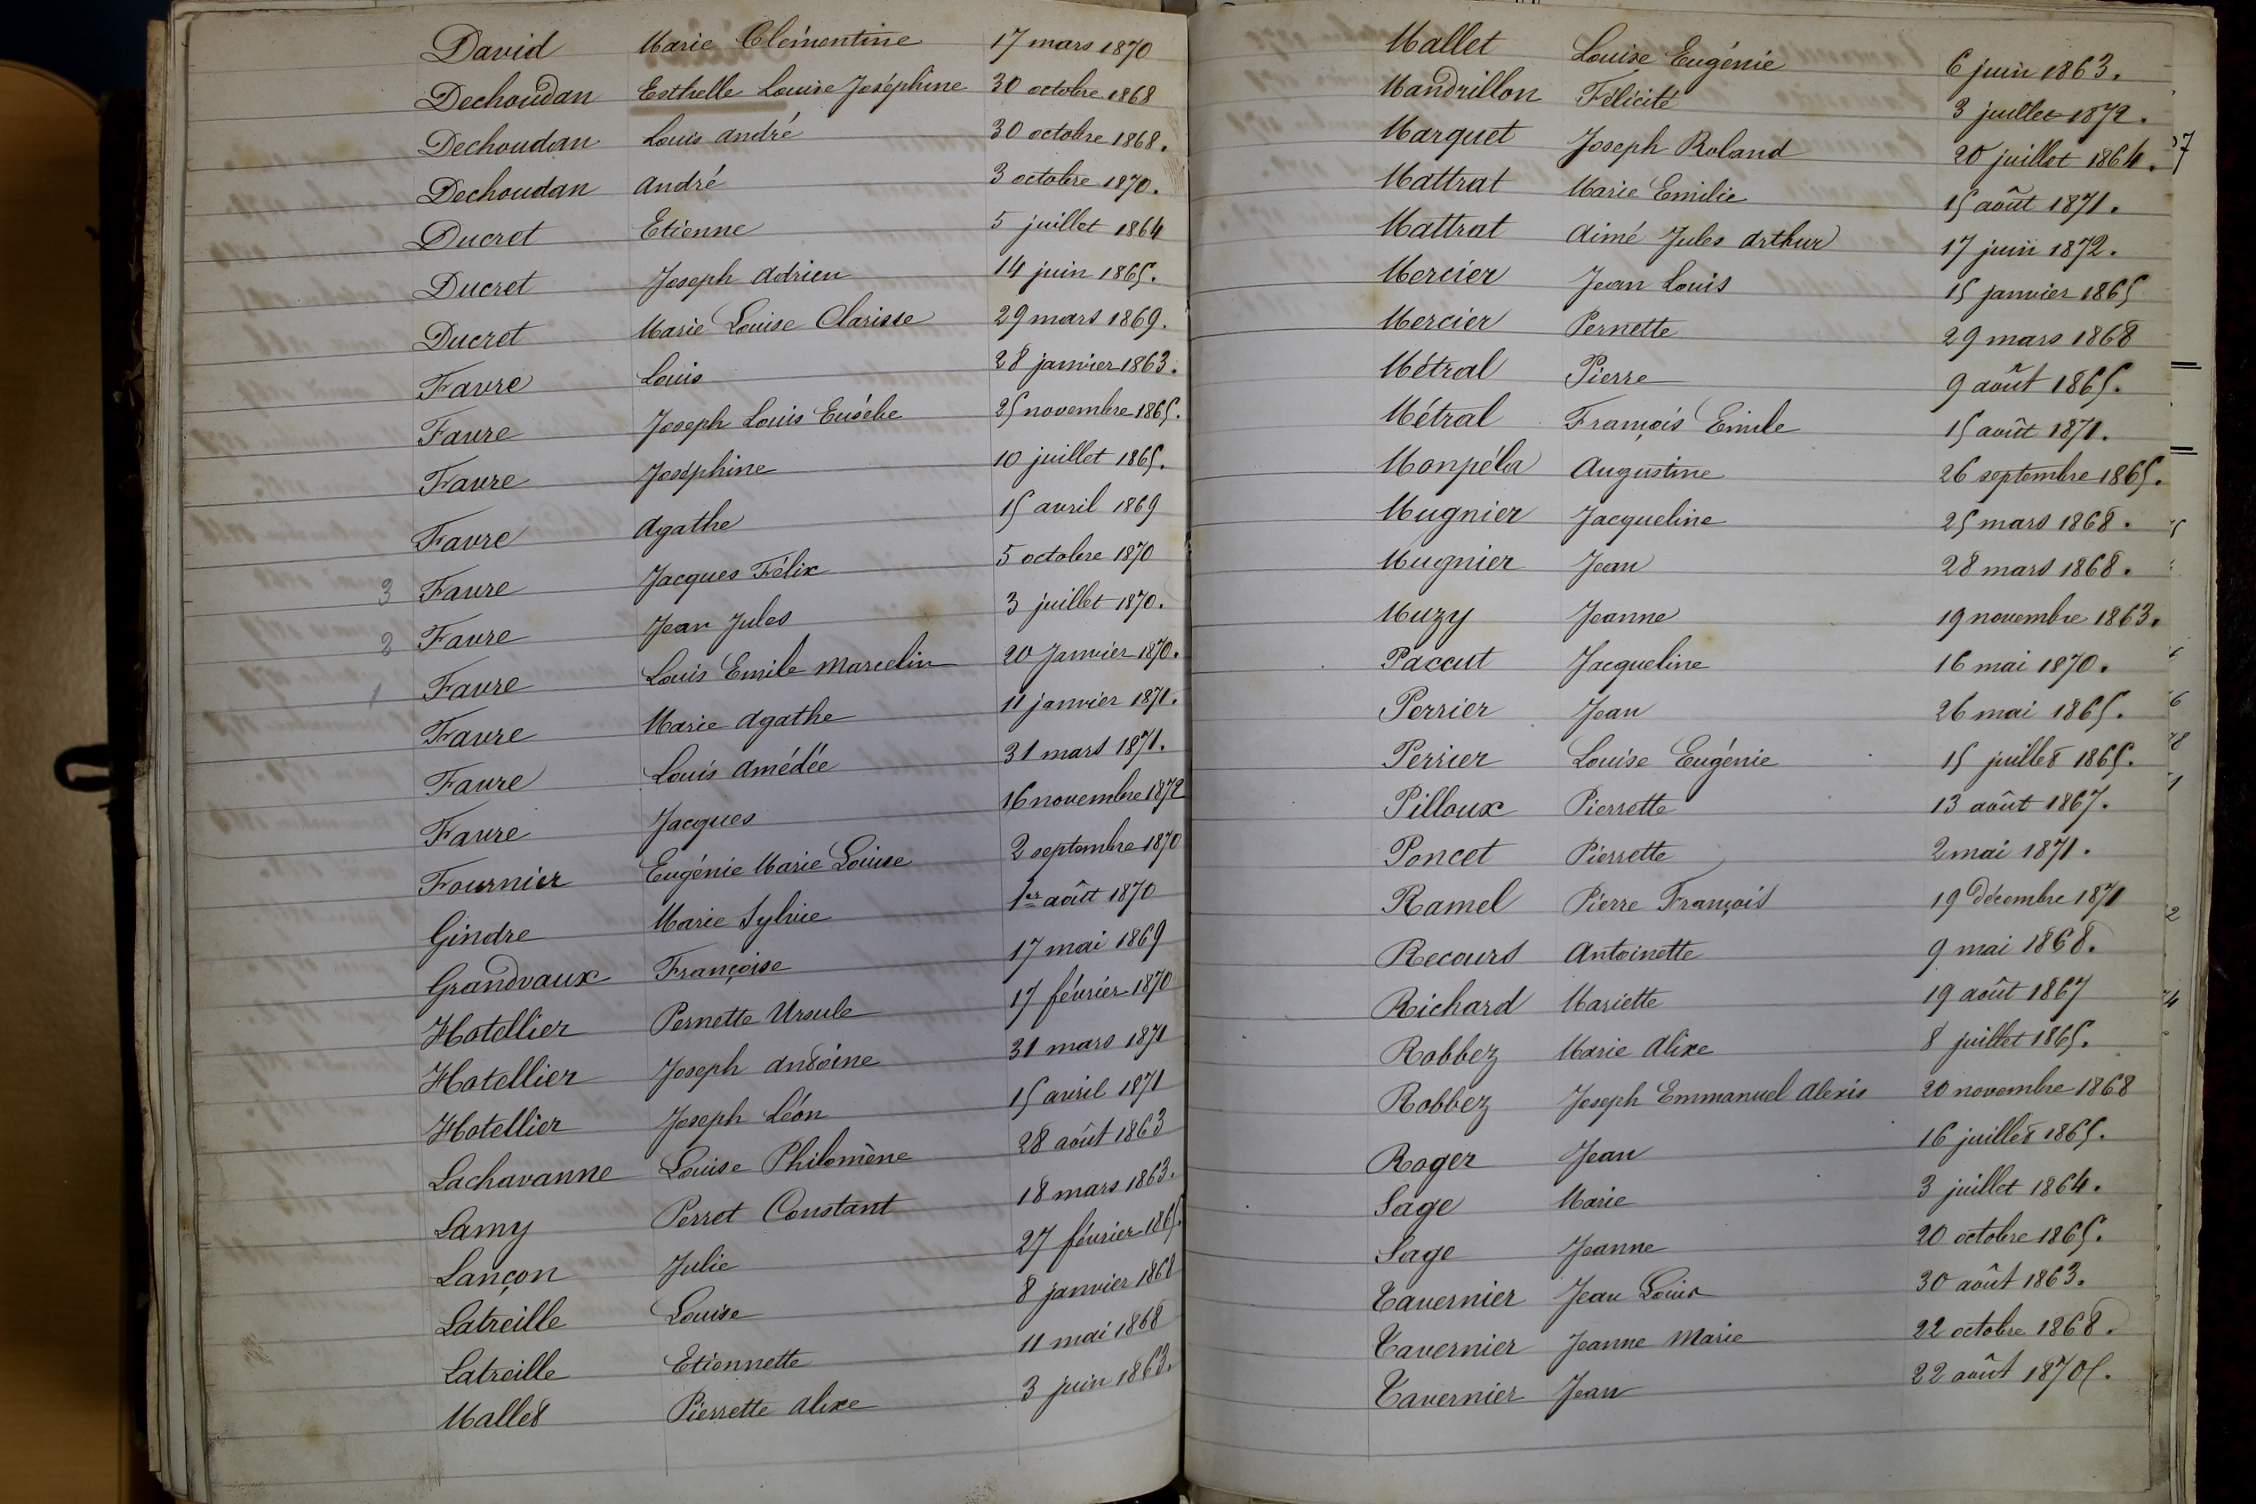 David Marie Clémentine 17 mars 1870
Dechoudan Esthelle Louise Joséphine 30 octobre 1868
Dechoudan Louis André 30 octobre 1868.
Dechoudan André 3 octobre 1870.
Ducret Etienne 5 juillet 1864
Ducret Joseph Adrien 14 juin 1865.
Ducret Marie Louise Clarisse 29 mars 1869.
Favre Louis 28 janvier 1863.
Favre Joseph Louis Eusébe 25 novembre 1865.
Favre Joséphine 10 juillet 1865.
Favre Agathe 15 avril 1869
3 Favre Jacques Félix 5 octobre 1870
2 Favre Jean Jules 3 juillet 1870.
1 Favre Louis Emile Marcelin 20 Janvier 1870.
Favre Marie Agathe 11 janvier 1871.
Favre Louis Amédée 31 mars 1871.
Favre Jacques 16 novembre 1872
Fournier Eugénie Marie Louise 2 septembre 1870
Gindre Marie Sylvie 1er août 1870
Grandvaux Françoise 17 mai 1869
Hotellier Pernette Ursule 17 février 1870
Hotellier Joseph Antoine 31 mars 1871
Hotellier Joseph Léon 15 avril 1871
Lachavanne Louise Philomène 28 août 1863
Lamy Perret Constant 18 mars 1863.
Lançon Julie 27 février 1865.
Latreille Louise 8 janvier 1868
Latreille Etiennette 11 mai 1868
Mallet Pierrette Alixe 3 juin 1863.
Mallet Louise Eugénie 6 juin 1863.
Mandrillon Félicité 3 juillet 1872.
Marquet Joseph Roland 20 juillet 1864.
Mattrat Marie Emilie 15 août 1871.
Mattrat Aimé Jules Arthur 17 juin 1872.
Mercier Jean Louis 15 janvier 1865
Mercier Pernette 29 mars 1868
Métral Pierre 9 août 1865.
Métral François Emile 15 août 1871.
Monpéla Augustine 26 septembre 1865.
Mugnier Jacqueline 25 mars 1868.
Mugnier Jean 28 mars 1868.
Muzy Jeanne 19 novembre 1863.
Paccut Jacqueline 16 mai 1870.
Perrier Jean 26 mai 1865.
Perrier Louise Eugénie 15 juillet 1865.
Pilloux Pierrette 13 août 1867.
Poncet Pierrette 2 mai 1871.
Ramel Pierre François 19 décembre 1871
Recours Antoinette 9 mai 1868.
Richard Mariette 19 août 1867
Robbez Marie Alixe 8 juillet 1865.
Robbez Joseph Emmanuel Alexis 20 novembre 1868
Roger Jean 16 juillet 1865.
Sage Marie 3 juillet 1864.
Sage Jeanne 20 octobre 1865.
Tavernier Jean Louis 30 août 1863.
Tavernier Jeanne Marie 22 octobre 1868.
Tavernier Jean 22 août 1870